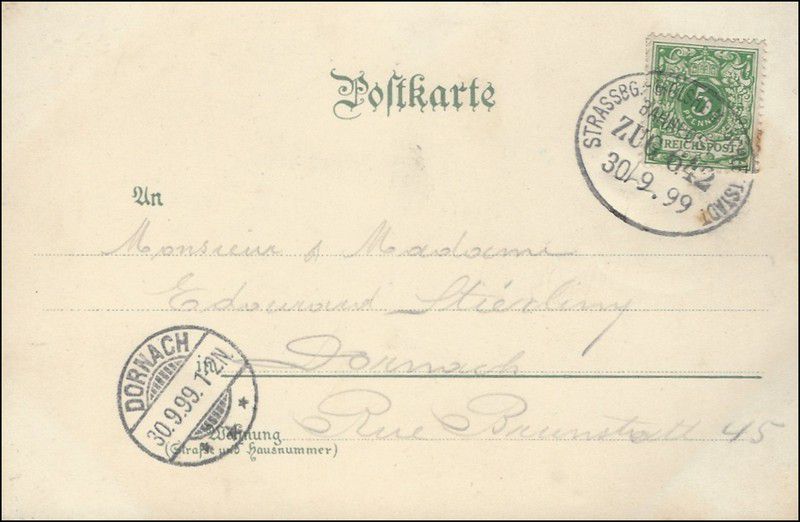 Postkarte
5
PFENNIG
REICHSPOST
STRASSBG.
BAHNPOST
ZUG 642
30/9.99
An
Monsieur & Madame
Edouard Stierling
in Dornach
DORNACH
30.9.99.1-2N
Wohnung
(Straße und Hausnummer)
Rue Brunstatt 45